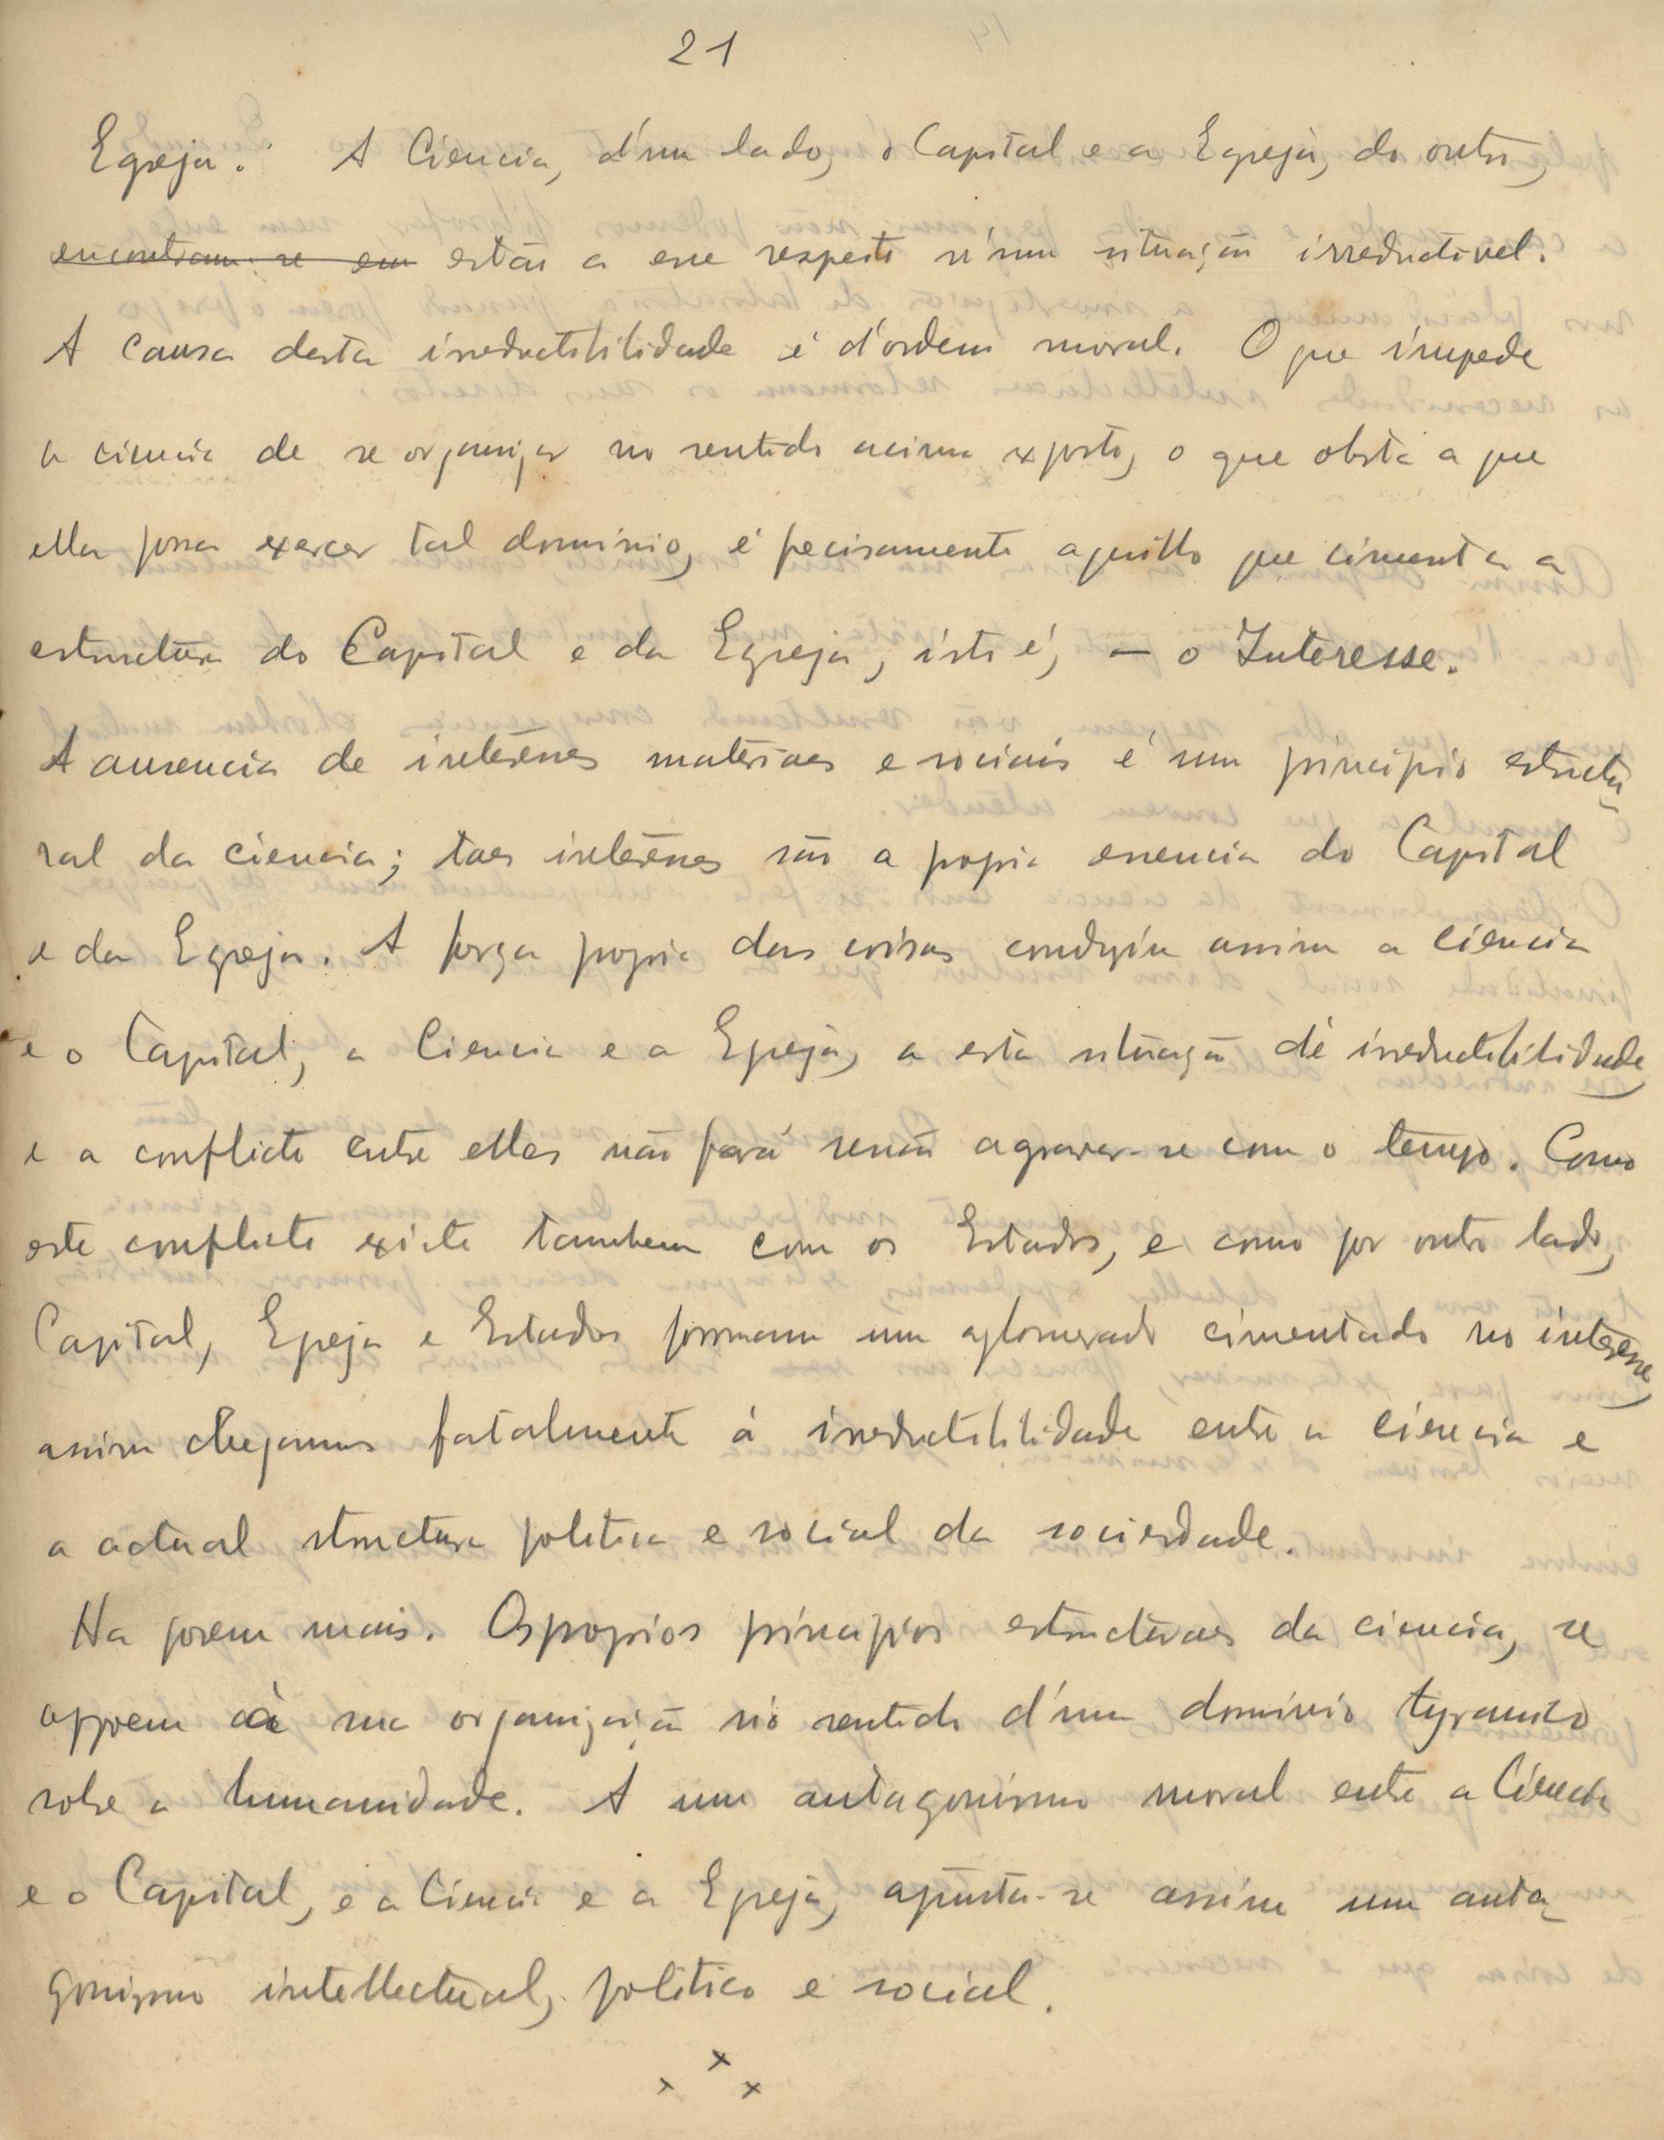 21
Egreja. A Ciencia, d'um lado, o Capital e a Egreja, do outro,
encontram-se em estão a esse respeito n'uma situação irreductivel.
A causa desta irreductibilidade é d'ordem moral. O que impede
a ciencia de se organizar no sentido acima exposto, o que obsta a que
ella possa exercer tal dominio, é precisamente aquillo que cimenta a
estructura do Capital e da Egreja, isto é, — o Interesse.
A ausencia de interesses materiaes e sociais é um principio estructu-
ral da ciencia; taes interesses são a propria essencia do Capital
e da Egreja. A força propria das coisas conduziu assim a ciencia
e o Capital, a Ciencia e a Egreja, a esta situação de irreductibilidade
e a conflicto entre elles não fará senão agravar-se com o tempo. Como
este conflicto existe tambem com os Estados, e como por outro lado,
Capital, Egreja e Estados formam um aglomerado cimentado no interesse,
assim chegamos fatalmente á irreductibilidade entre a ciencia e
a actual structura politica e social da sociedade.
Ha porem mais. Os proprios principios estructuraes da ciencia, se
oppoem à sua organização no sentido d'um dominio tyranico
sobre a humanidade. A um antagonismo moral entre a Ciencia
e o Capital, e a Ciencia e a Egreja, ajunta-se assim um anta-
gonismo intellectual, politico e social.
x x x